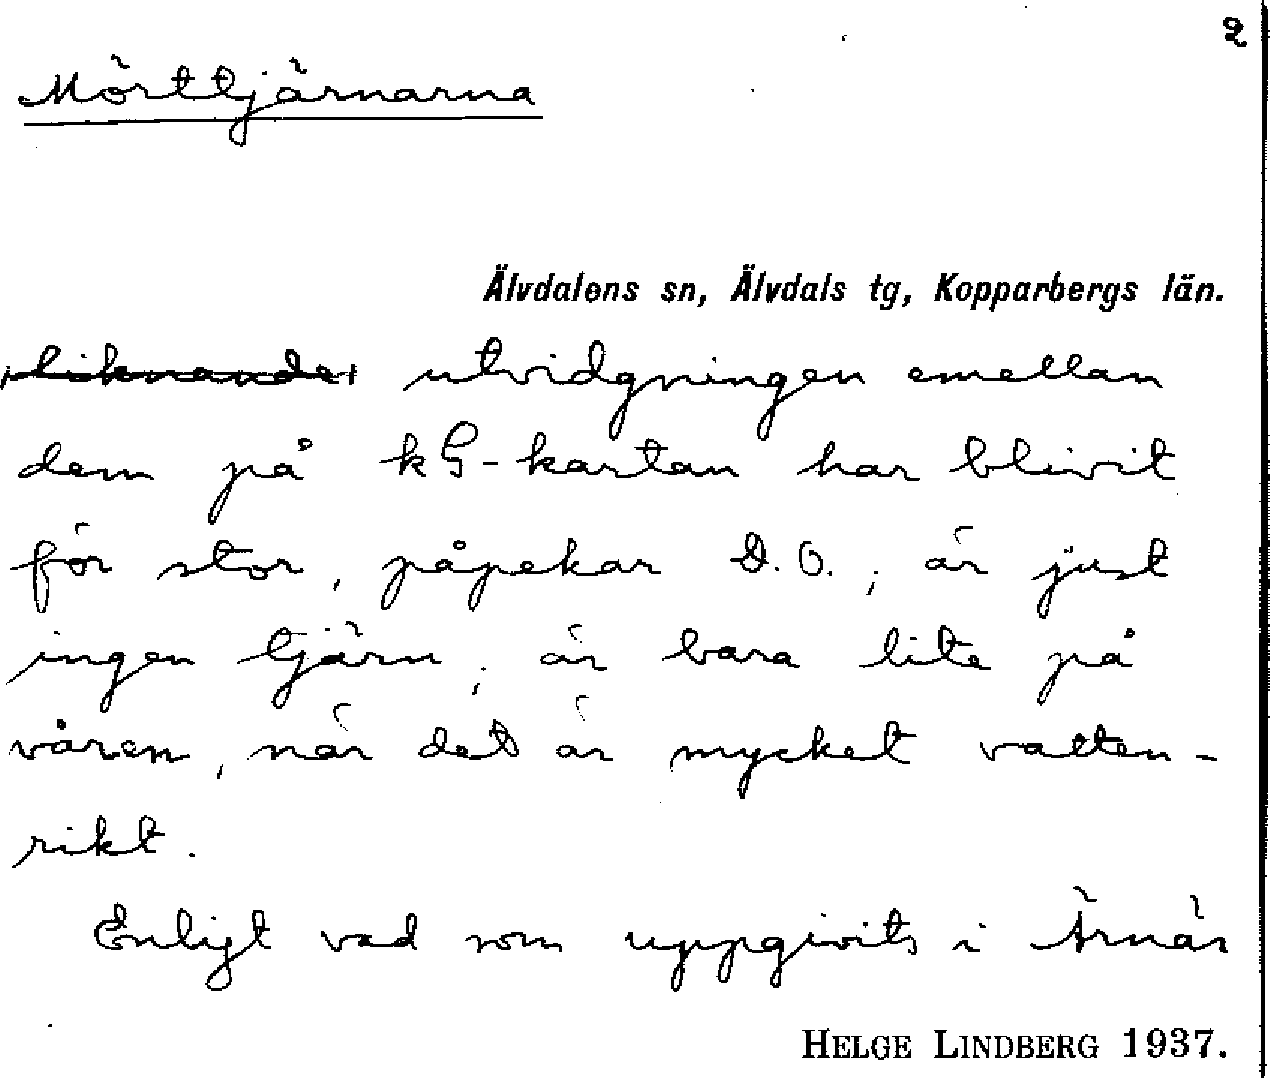 2
Mörttjärnarna
Älvdalens sn, Älvdals tg, Kopparbergs län.
liknande utvidgningen emellan
dem på kG-kartan har blivit
för stor, påpekar D.O.; är just
ingen tjärn; är bara lite på
våren, när det är mycket vatten-
rikt.
Enligt vad som uppgivits i Ärnäs
HELGE LINDBERG 1937.